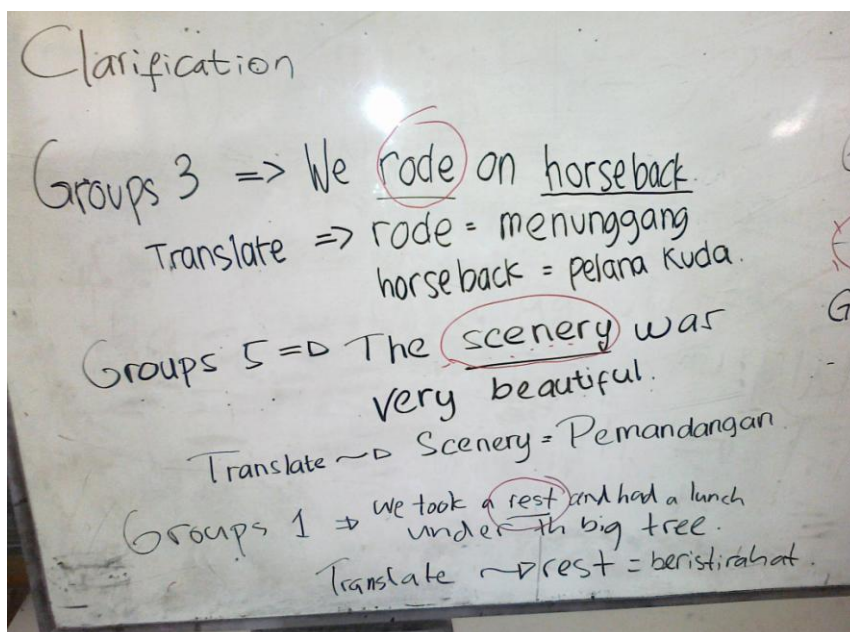 Clarification
Groups 3 => We rode on horseback.
Translate => rode = menunggang
horseback = pelana kuda.
Groups 5 => The scenery was
very beautiful.
Translate ~> Scenery = Pemandangan
Groups 1 => we took a rest and had a lunch
under th big tree.
Translate ~> rest = beristirahat.
G